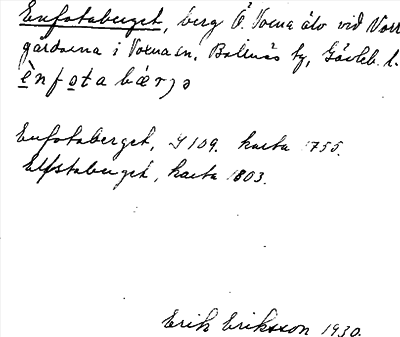 Enfotaberget, berg Ö. Voxna älv vid Norr
gårdarna i Voxna sn. Bollnäs tg, Gävleb. l.
ènfota bær)ə
Enfotaberget, Y 109. karta 1755.
Elfstaberget, karta 1803.
Erik Eriksson 1930.